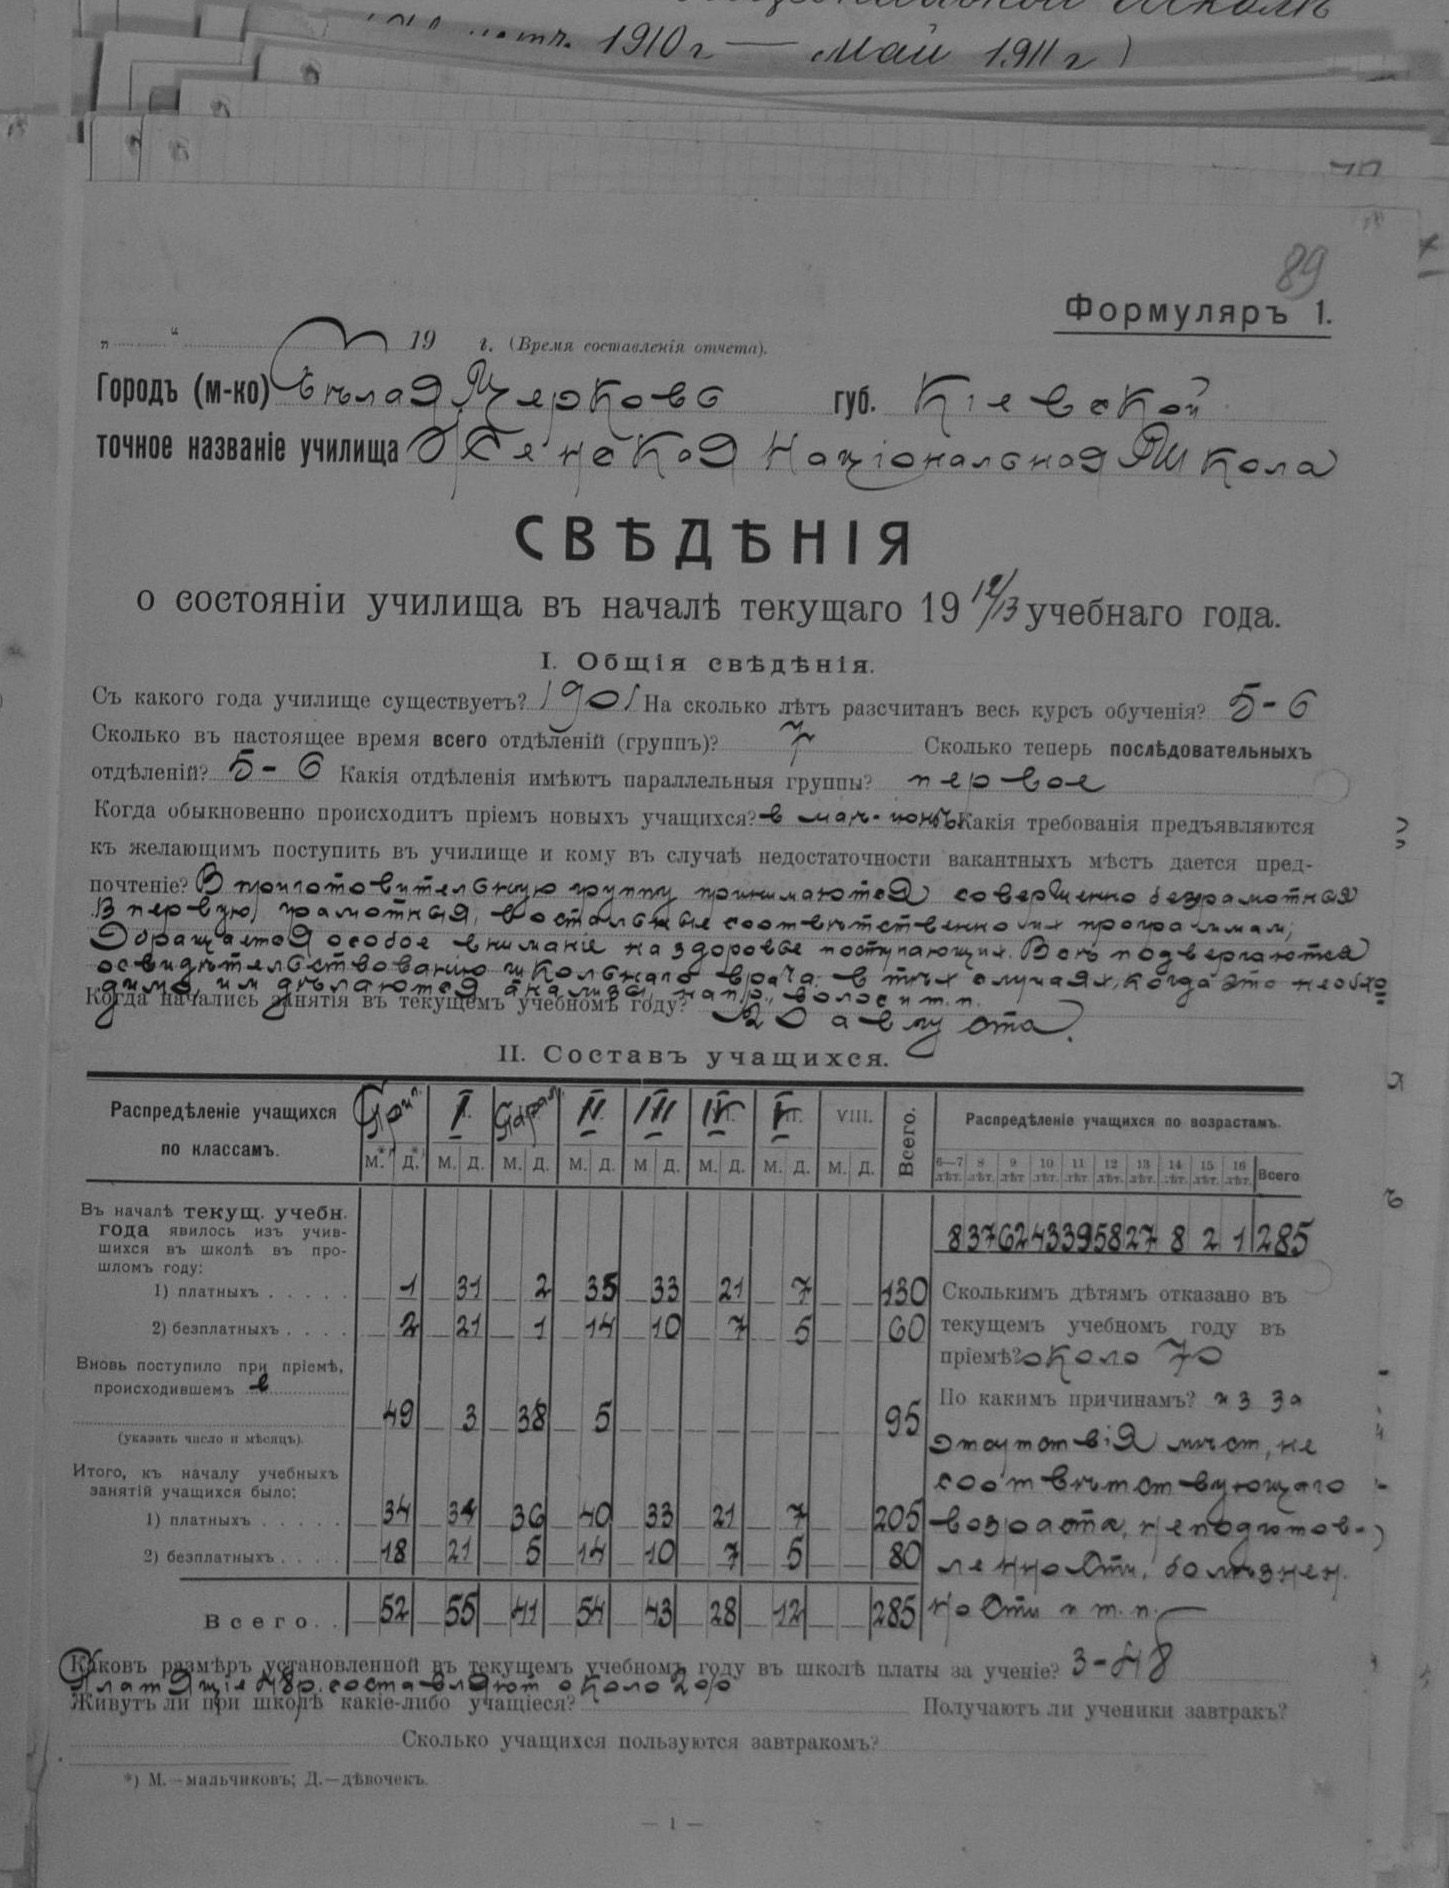 1910 г — май 1911 г)
89
Формуляръ 1.
„ “ 19 г. (Время составленія отчета).
Городъ (м-ко) Бѣлая Церковь губ. Кіевской
точное названіе училища Женская Национальная Школа
СВѢДѢНІЯ
о состояніи училища въ началѣ текущаго 1912/13 учебнаго года.
I. Общія свѣдѣнія.
Съ какого года училище существуетъ? 1901 На сколько лѣтъ разсчитанъ весь курсъ обученія? 5-6
Сколько въ настоящее время всего отдѣленій (группъ)? 7 Сколько теперь послѣдовательныхъ
отдѣленій? 5-6 Какія отдѣленія имѣютъ параллельныя группы? первое
Когда обыкновенно происходитъ пріемъ новыхъ учащихся? в маѣ-іюнѣ Какія требованія предъявляются
къ желающимъ поступить въ училище и кому въ случаѣ недостаточности вакантныхъ мѣстъ дается пред-
почтеніе? В приготовительную группу принимаются совершенно безграмотныя
В первую, грамотныя, в остальные соотвѣтственно их программам;
Обращается особое вниманіе на здоровье поступающих. Всѣ подвергаются
освидѣтельствованію школьнаго врача. в тѣх случаях, когда это необхо
димо, им дѣлаются анализы, напр., волос и т. п.
Когда начались занятія въ текущемъ учебномъ году? 20 августа.
II. Составъ учащихся.
Распредѣленіе учащихся по классамъ. Приг. I. Парал. II. III IV V VIII. Всего. Распредѣленіе учащихся по возрастамъ.
М.*) Д.*) М. Д. М. Д. М. Д. М Д. М. Д. М. Д. М. Д. 6—7 лѣт. 8 лѣт. 9 лѣт 10 лѣт. 11 лѣт. 12 лѣт. 13 лѣт. 14 лѣт. 15 лѣт. 16 лѣт. Всего
Въ началѣ текущ. учебн.
года явилось изъ учив-
шихся въ школѣ въ про-
шломъ году:
8 37 62 43 39 58 27 8 2 1 285
1) платныхъ . . . . . 1 31 2 35 33 21 7 130
2) безплатныхъ . . . . 2 21 1 14 10 7 5 60
Вновь поступило при пріемѣ,
происходившемъ в
49 3 38 5 95
(указать число и мѣсяцъ).
Итого, къ началу учебныхъ
занятій учащихся было:
1) платныхъ . . . . . 34 34 36 40 33 21 7 205
2) безплатныхъ . . . . 18 21 5 14 10 7 5 80
Всего. . 52 55 41 54 43 28 12 285
Сколькимъ дѣтямъ отказано въ
текущемъ учебномъ году въ
пріемѣ? около 70
По какимъ причинамъ? из за
отсутствія мѣст, не
соотвѣтствующаго
возраста, неподготов-
ленности, болѣзнен.
ности и т. п.
Каковъ размѣръ установленной въ текущемъ учебномъ году въ школѣ платы за ученіе? 3-48
Платящіе 48 р. составляют около 2%
Живутъ ли при школѣ какіе-либо учащіеся? Получаютъ ли ученики завтракъ?
Сколько учащихся пользуются завтракомъ?
*) М.—мальчиковъ; Д.—дѣвочекъ.
— 1 —